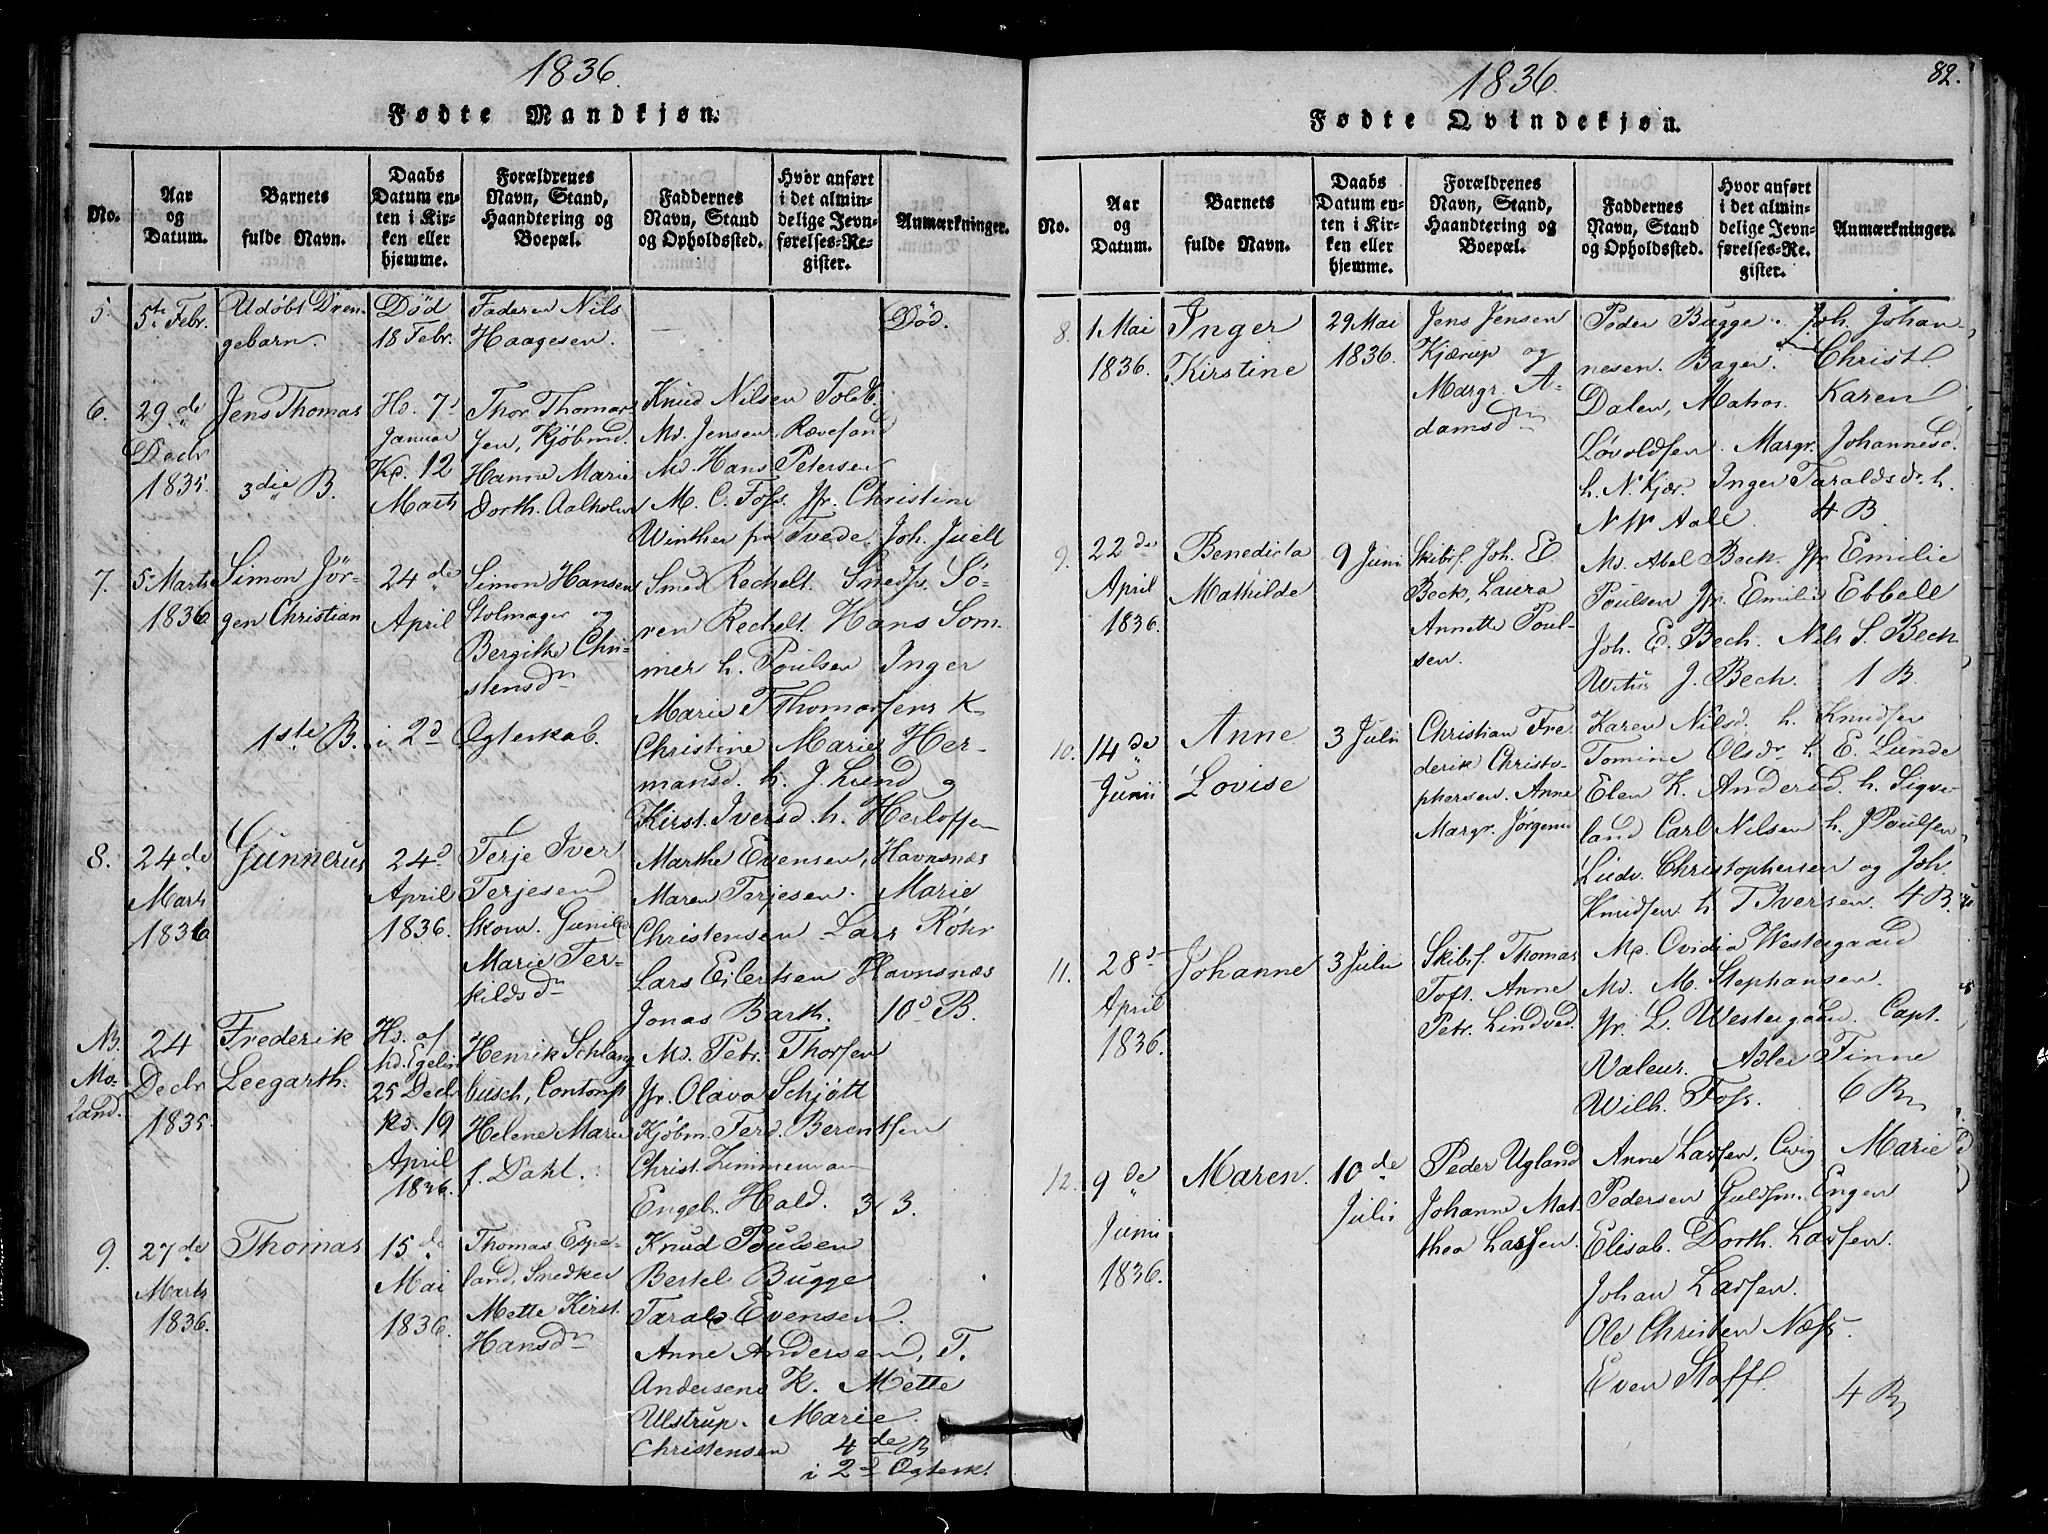 1836.
Fødte Mandkjøn.
No.
Aar og Datum.
Barnets fulde Navn.
Daabs Datum enten i Kirken eller hjemme.
Forældrenes Navn, Stand, Haandtering og Boepæl.
Faddernes Navn, Stand og Opholdssted.
Hvor anført i det almindelige Jevnførelses-Register.
Anmærkninger.
5.
5te Febr.
Udøbt Dren-
gebarn.
Død
18 Febr.
Faderen Nils
Haagesen.
Død.
6.
29de
Decbr
1835.
Jens Thomas
3die B.
Hd. 7d
Januar
Kd. 12
Marts
Thor Thomas-
sen, Kjøbmd.
Hanne Marie
Dorth. Aalholm
Knud Nilsen Toldb.
Md. Jensen Rævesand
Md. Hans Petersen
M. C. Foss. Jfr. Christine
Winther fra Tvede. Joh. Juell
7.
5 Marts
1836.
Simon Jör-
gen Christian
1ste B.
24de
April
i 2d
Simon Hansen
Stolmager og
Bergithe Chri-
stensdn
Ogteskab.
Smed Rechelt. Smedss. Sö-
ren Rechelt. Hans Som-
mer h. Poulsen Inger
Marie T Thomassens K
Christine Marie Her-
mansd. h. J. Lund og
Kirst. Iversd. h. Herloffsen
8.
24de
Marts
1836
Gunnerus
24d
April
1836.
Terje Iver
Terjesen
Skow. Gunild
Marie Ter-
kildsdn
Marthe Evensen, Havnsnæs
Maren Terjesen. Marie
Christensen Lars Röhr
Lars Eilertsen Havnsnæs
Jonas Barth. 10d B.
NB.
Mo-
land.
24
Decbr
1835.
Frederik
Leegarth.
Hd. af
Md. Egelin
25 Decbr
Kd. 19
April
1836.
Henrik Schlang
busch, Contorist
Helene Marie
f. Dahl.
Md. Petr. Thorsen
Jfr. Olava Schjøtt
Kjöbm. Ferd. Berentsen
Christ. Zimmerman
Engeb. Hald. 3 B.
9.
27de
Marts
1836.
Thomas
15de
Mai
1836.
Thomas Eppe-
land, Snedker
Mette Kirst.
Hansdn
Knud Poulsen
Bertel Bugge
Tarald Evensen.
Anne Andersen, T.
Andersens K. Mette
Ulstrup. Marie
Christensen 4de B
i 2d Ogtesk.
82.
1836.
Fødte Qvindekjøn.
No.
Aar og Datum.
Barnets fulde Navn.
Daabs Datum enten i Kirken eller hjemme.
Forældrenes Navn, Stand, Haandtering og Boepæl.
Faddernes Navn, Stand og Opholdssted.
Hvor anført i det almindelige Jevnførelses-Register.
Anmærkninger.
8.
1 Mai
1836.
Inger
Kirstine
29 Mai
1836.
Jens Jensen
Kjærup og
Margr. A-
damsdn
Peder Bugge. Joh. Johan-
nesen. Bager. Christ
Dalen, Matros. Karen
Lövoldsen. Margr. Johannesd.
h. N. Kjær. Inger Taraldsd. h.
N W Aale. 4 B.
9.
22de
April
1836.
Benedicta
Mathilde
9 Juni
Skibsf. Joh. E.
Beck, Laura
Annette Poul-
sen.
Md. Abel Beck. Jfr Emilie
Poulsen Jfr. Emilie Ebbell
Joh. E. Bech. Nils S. Bech
Witus J. Bech. 1 B.
10.
14de
Junii
Anne
Lovise
3 Julii
Christian Fre-
derik Christo-
phersen. Anne
Margr. Jörgens
Karen Nilsd. h. Knudsen
Tomine Olsdr h. E. Lunde
Elen K. Andersd. h. Sigve-
land Carl Nilsen h. J Poulsen
Ludv. Christophersen og Joh.
Knudsen h. T Iversen. 4 B.
11.
28d
April
1836.
Johanne
3 Julii
Skibsf. Thomas
Toft. Anne
Petr. Lindved.
Md. Ovidia Westergaard
Md. M. Stephansen.
Jfr. L. Westergaard. Capt.
Valeur. Adler Finne
Wilh. Foss. 6 B.
12.
9de
Junii
1836.
Maren.
10de
Julii
Peder Ugland
Johanne Mat-
thea Lassen.
Anne Larsen, Evig Marie
Pedersen Guldsm. Engen
Elisab. Dorth. Larsen.
Johan Larsen.
Ole Christen Næss.
Even Staff.
4 B.